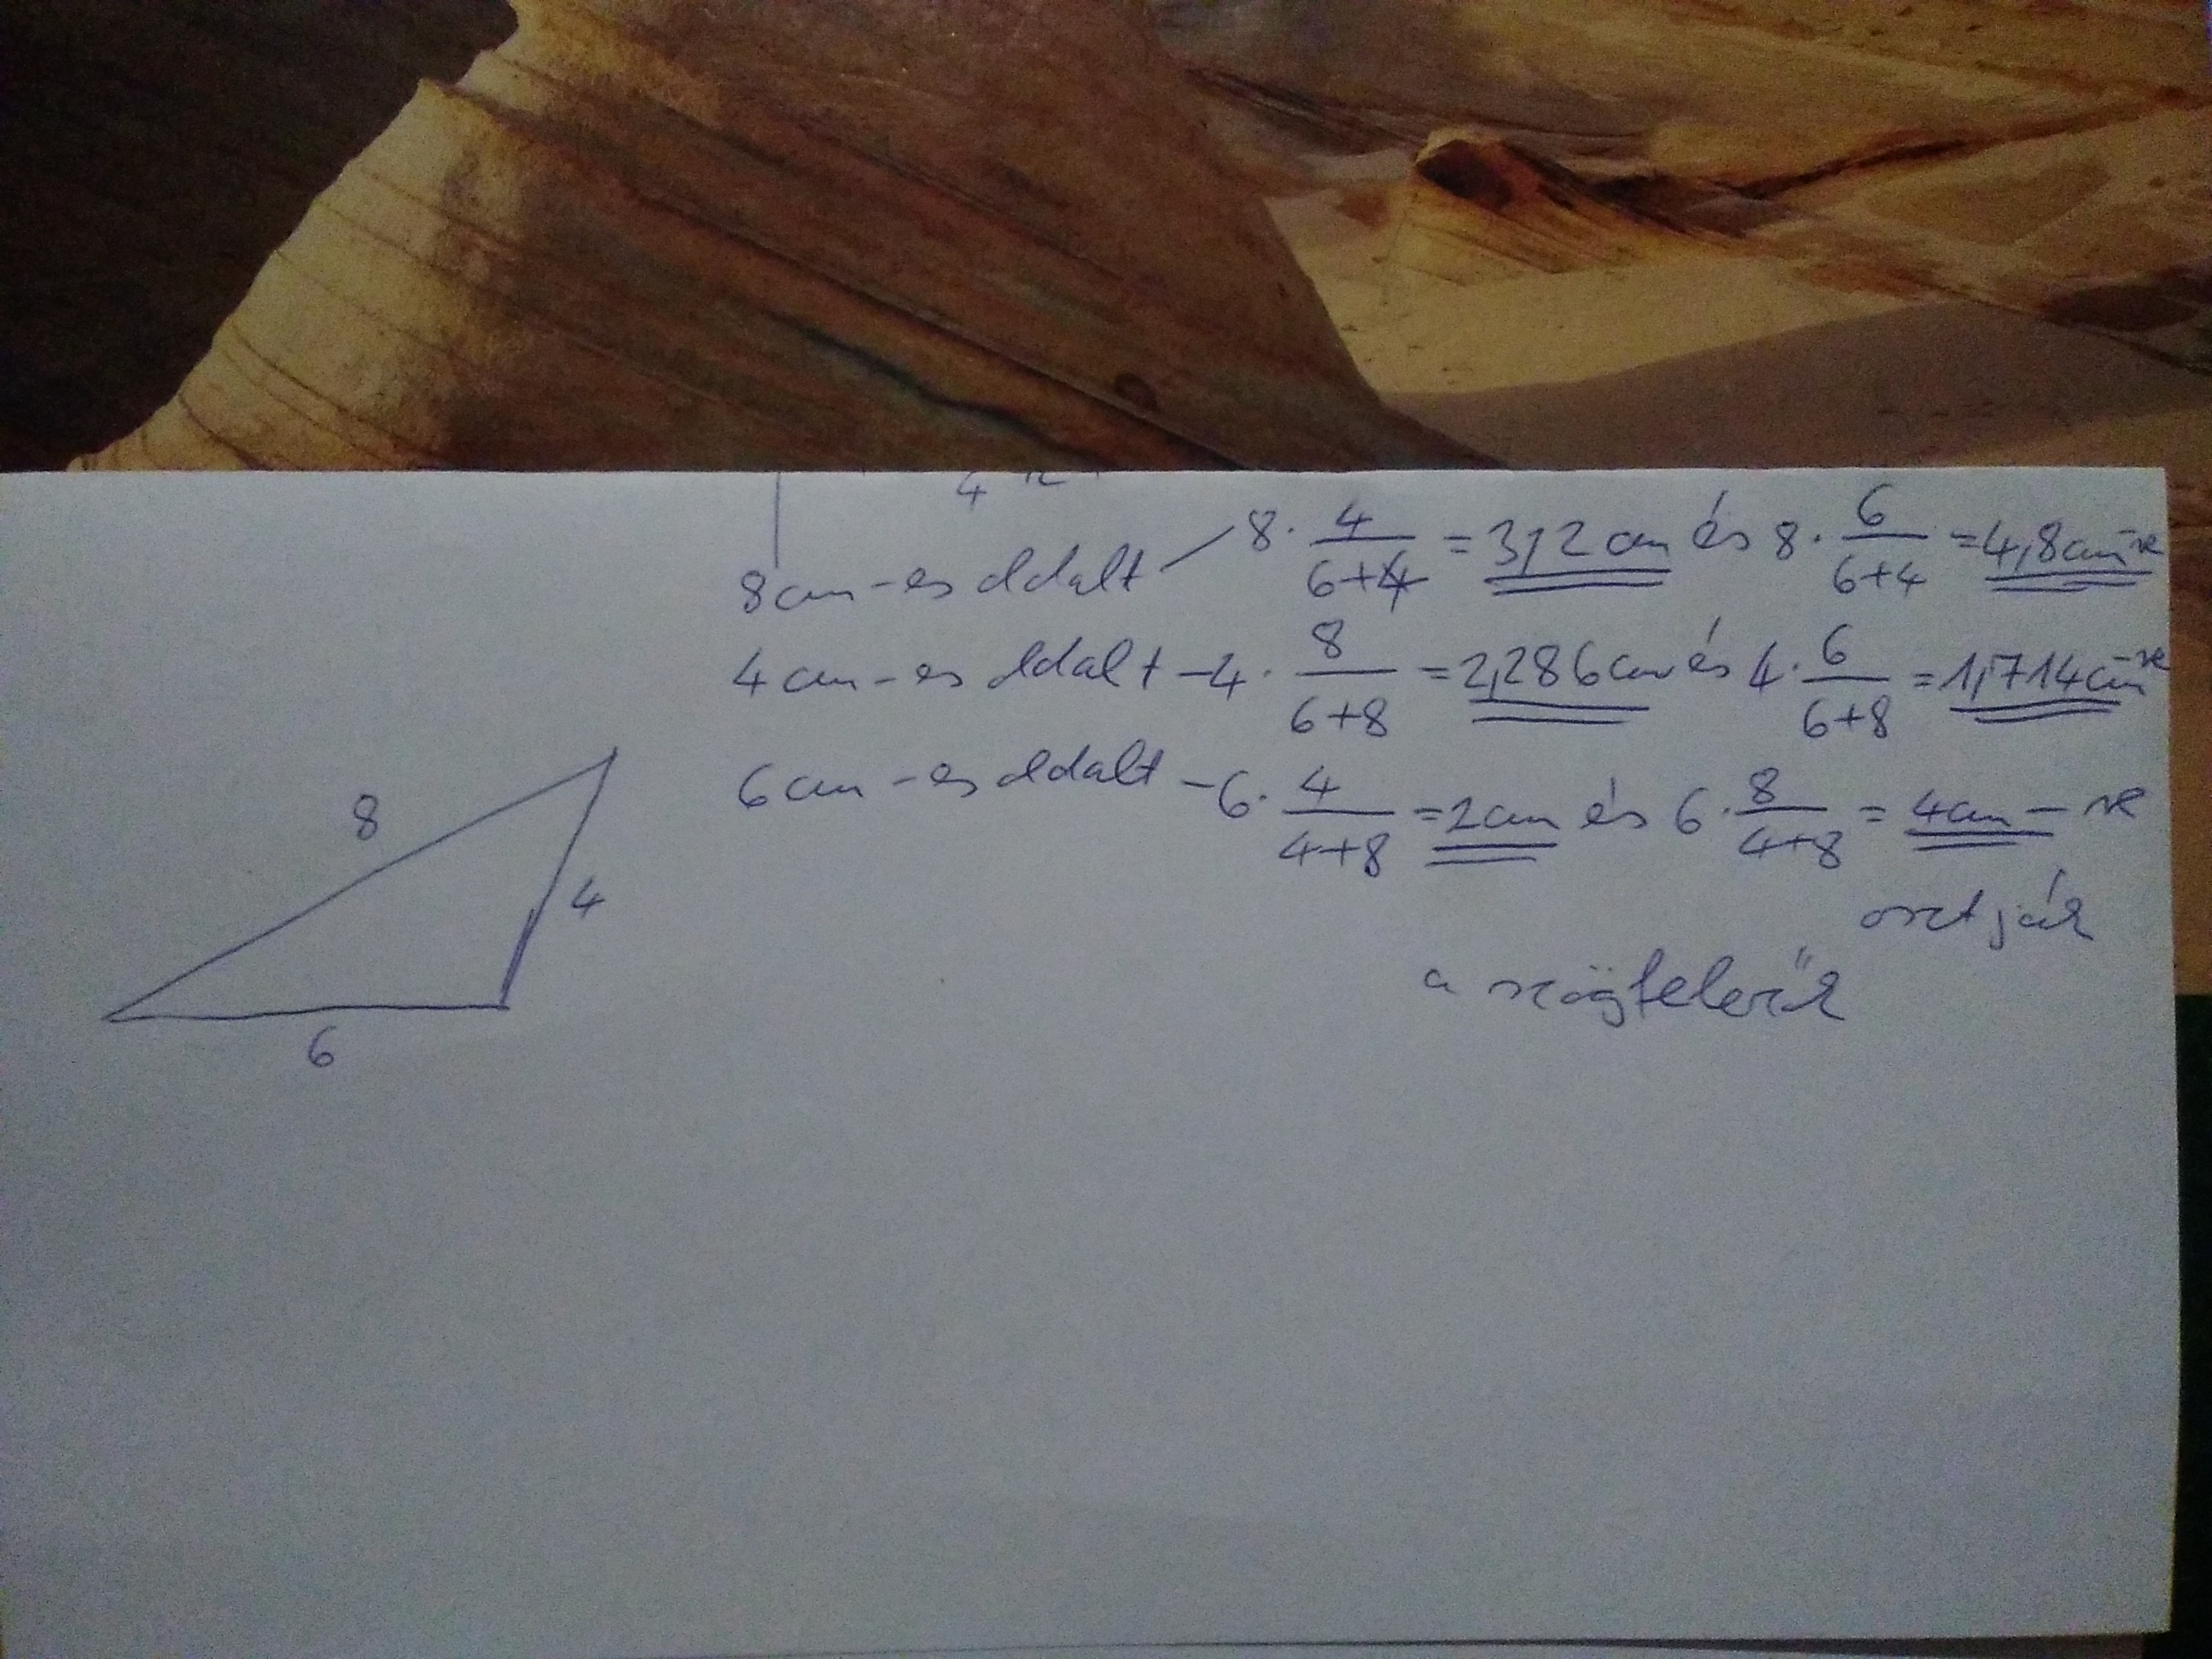 8cm-es oldalt - 8 · 4/(6+4) = 3,2 cm és 8 · 6/(6+4) = 4,8cm-re
4cm-es oldalt - 4 · 8/(6+8) = 2,286cm és 4 · 6/(6+8) = 1,714cm-re
6cm-es oldalt - 6 · 4/(4+8) = 2cm és 6 · 8/(4+8) = 4cm-re
osztják
a szögfelezők
8
4
6